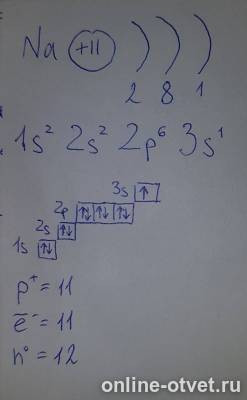 Na +11 ) ) )
2 8 1
1s² 2s² 2p⁶ 3s¹
3s ↑
2p ↑↓ ↑↓ ↑↓
2s ↑↓
1s ↑↓
p⁺ = 11
e̅⁻ = 11
n⁰ = 12
online-otvet.ru